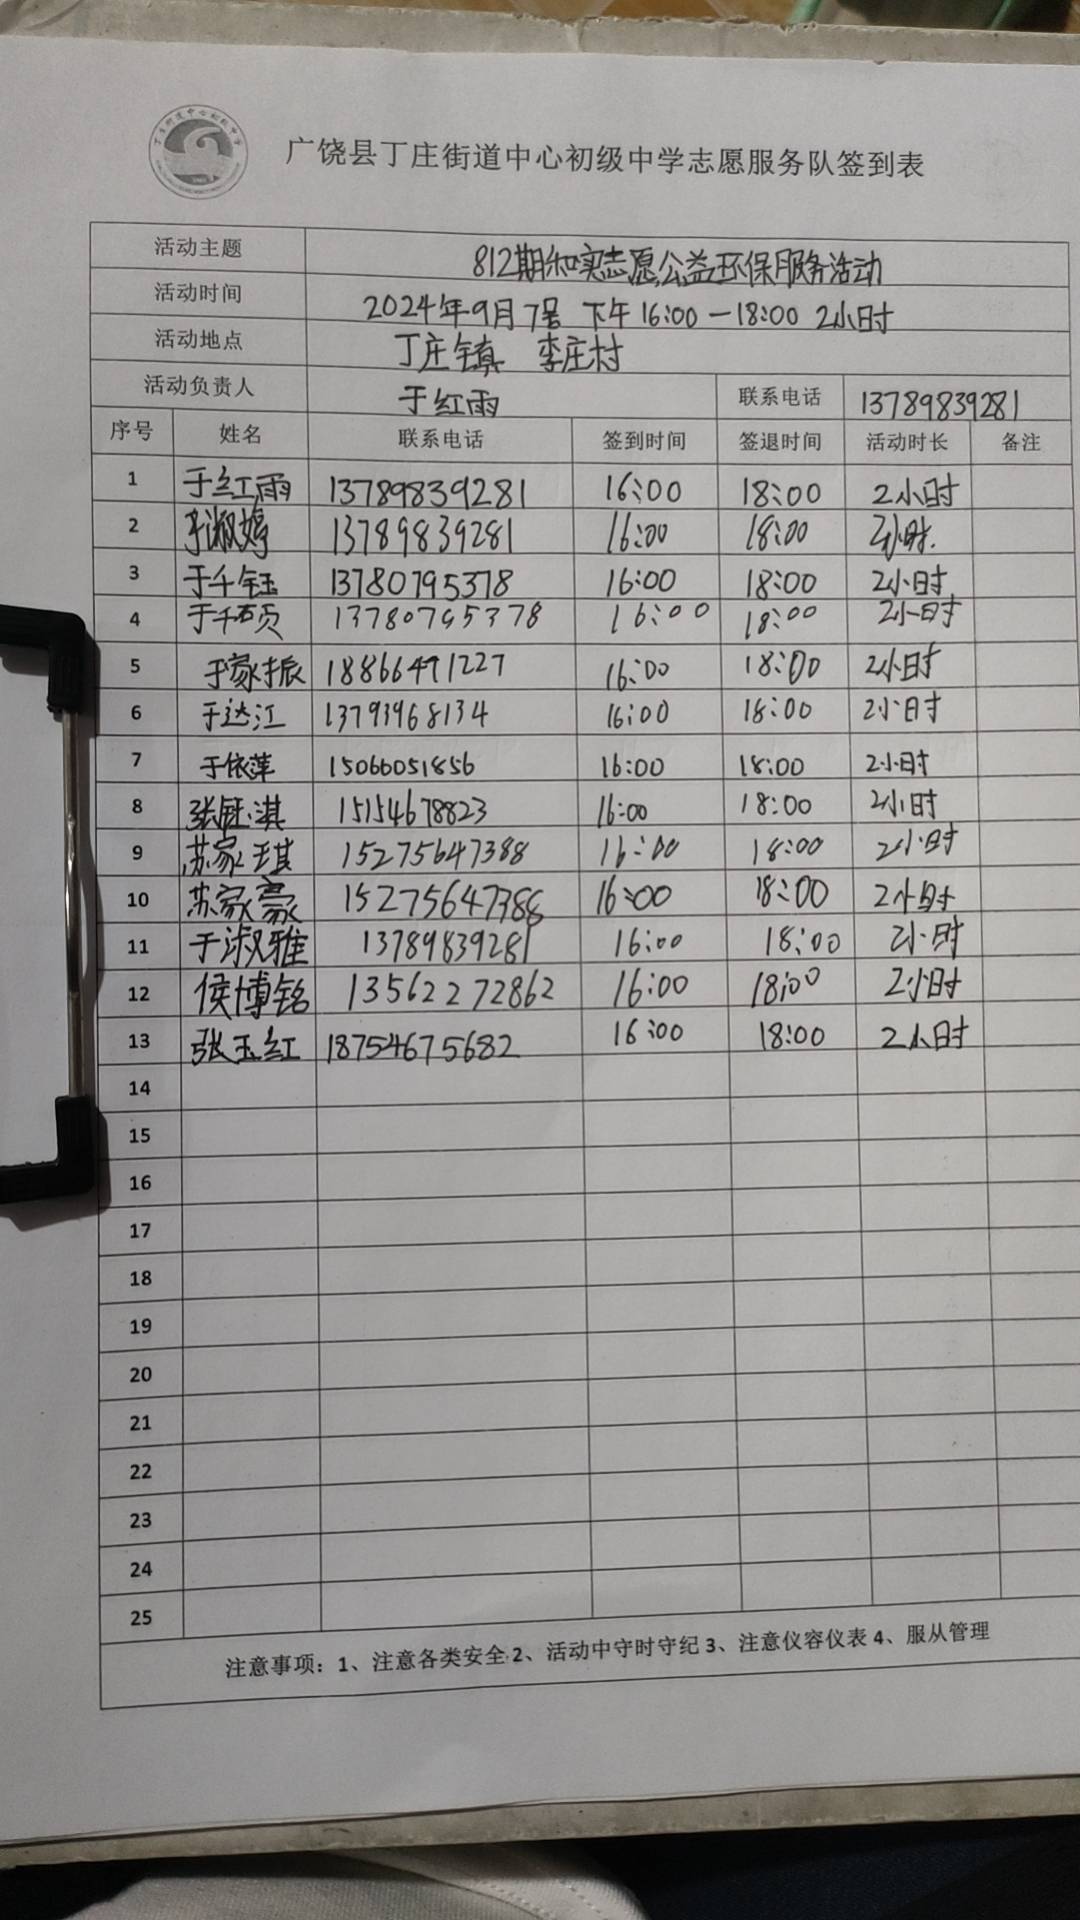 广饶县丁庄街道中心初级中学志愿服务队签到表
活动主题 812期和实志愿公益环保服务活动
活动时间 2024年9月7号 下午16:00—18:00 2小时
活动地点 丁庄镇 李庄村
活动负责人 于红雨 联系电话 13789839281
序号 姓名 联系电话 签到时间 签退时间 活动时长 备注
1 于红雨 13789839281 16:00 18:00 2小时
2 于淑婷 13789839281 16:00 18:00 2小时.
3 于千钰 13780795378 16:00 18:00 2小时
4 于千硕 13780795378 16:00 18:00 2小时
5 于家振 18866491227 16:00 18:00 2小时
6 于达江 13793968134 16:00 18:00 2小时
7 于依萍 15066051856 16:00 18:00 2小时
8 张钰淇 15154678823 16:00 18:00 2小时
9 苏家琪 15275647388 16:00 18:00 2小时
10 苏家豪 15275647388 16:00 18:00 2小时
11 于淑雅 13789839281 16:00 18:00 2小时
12 侯博铭 13562272862 16:00 18:00 2小时
13 张玉红 18754675682 16:00 18:00 2小时
14
15
16
17
18
19
20
21
22
23
24
25
注意事项：1、注意各类安全 2、活动中守时守纪 3、注意仪容仪表 4、服从管理